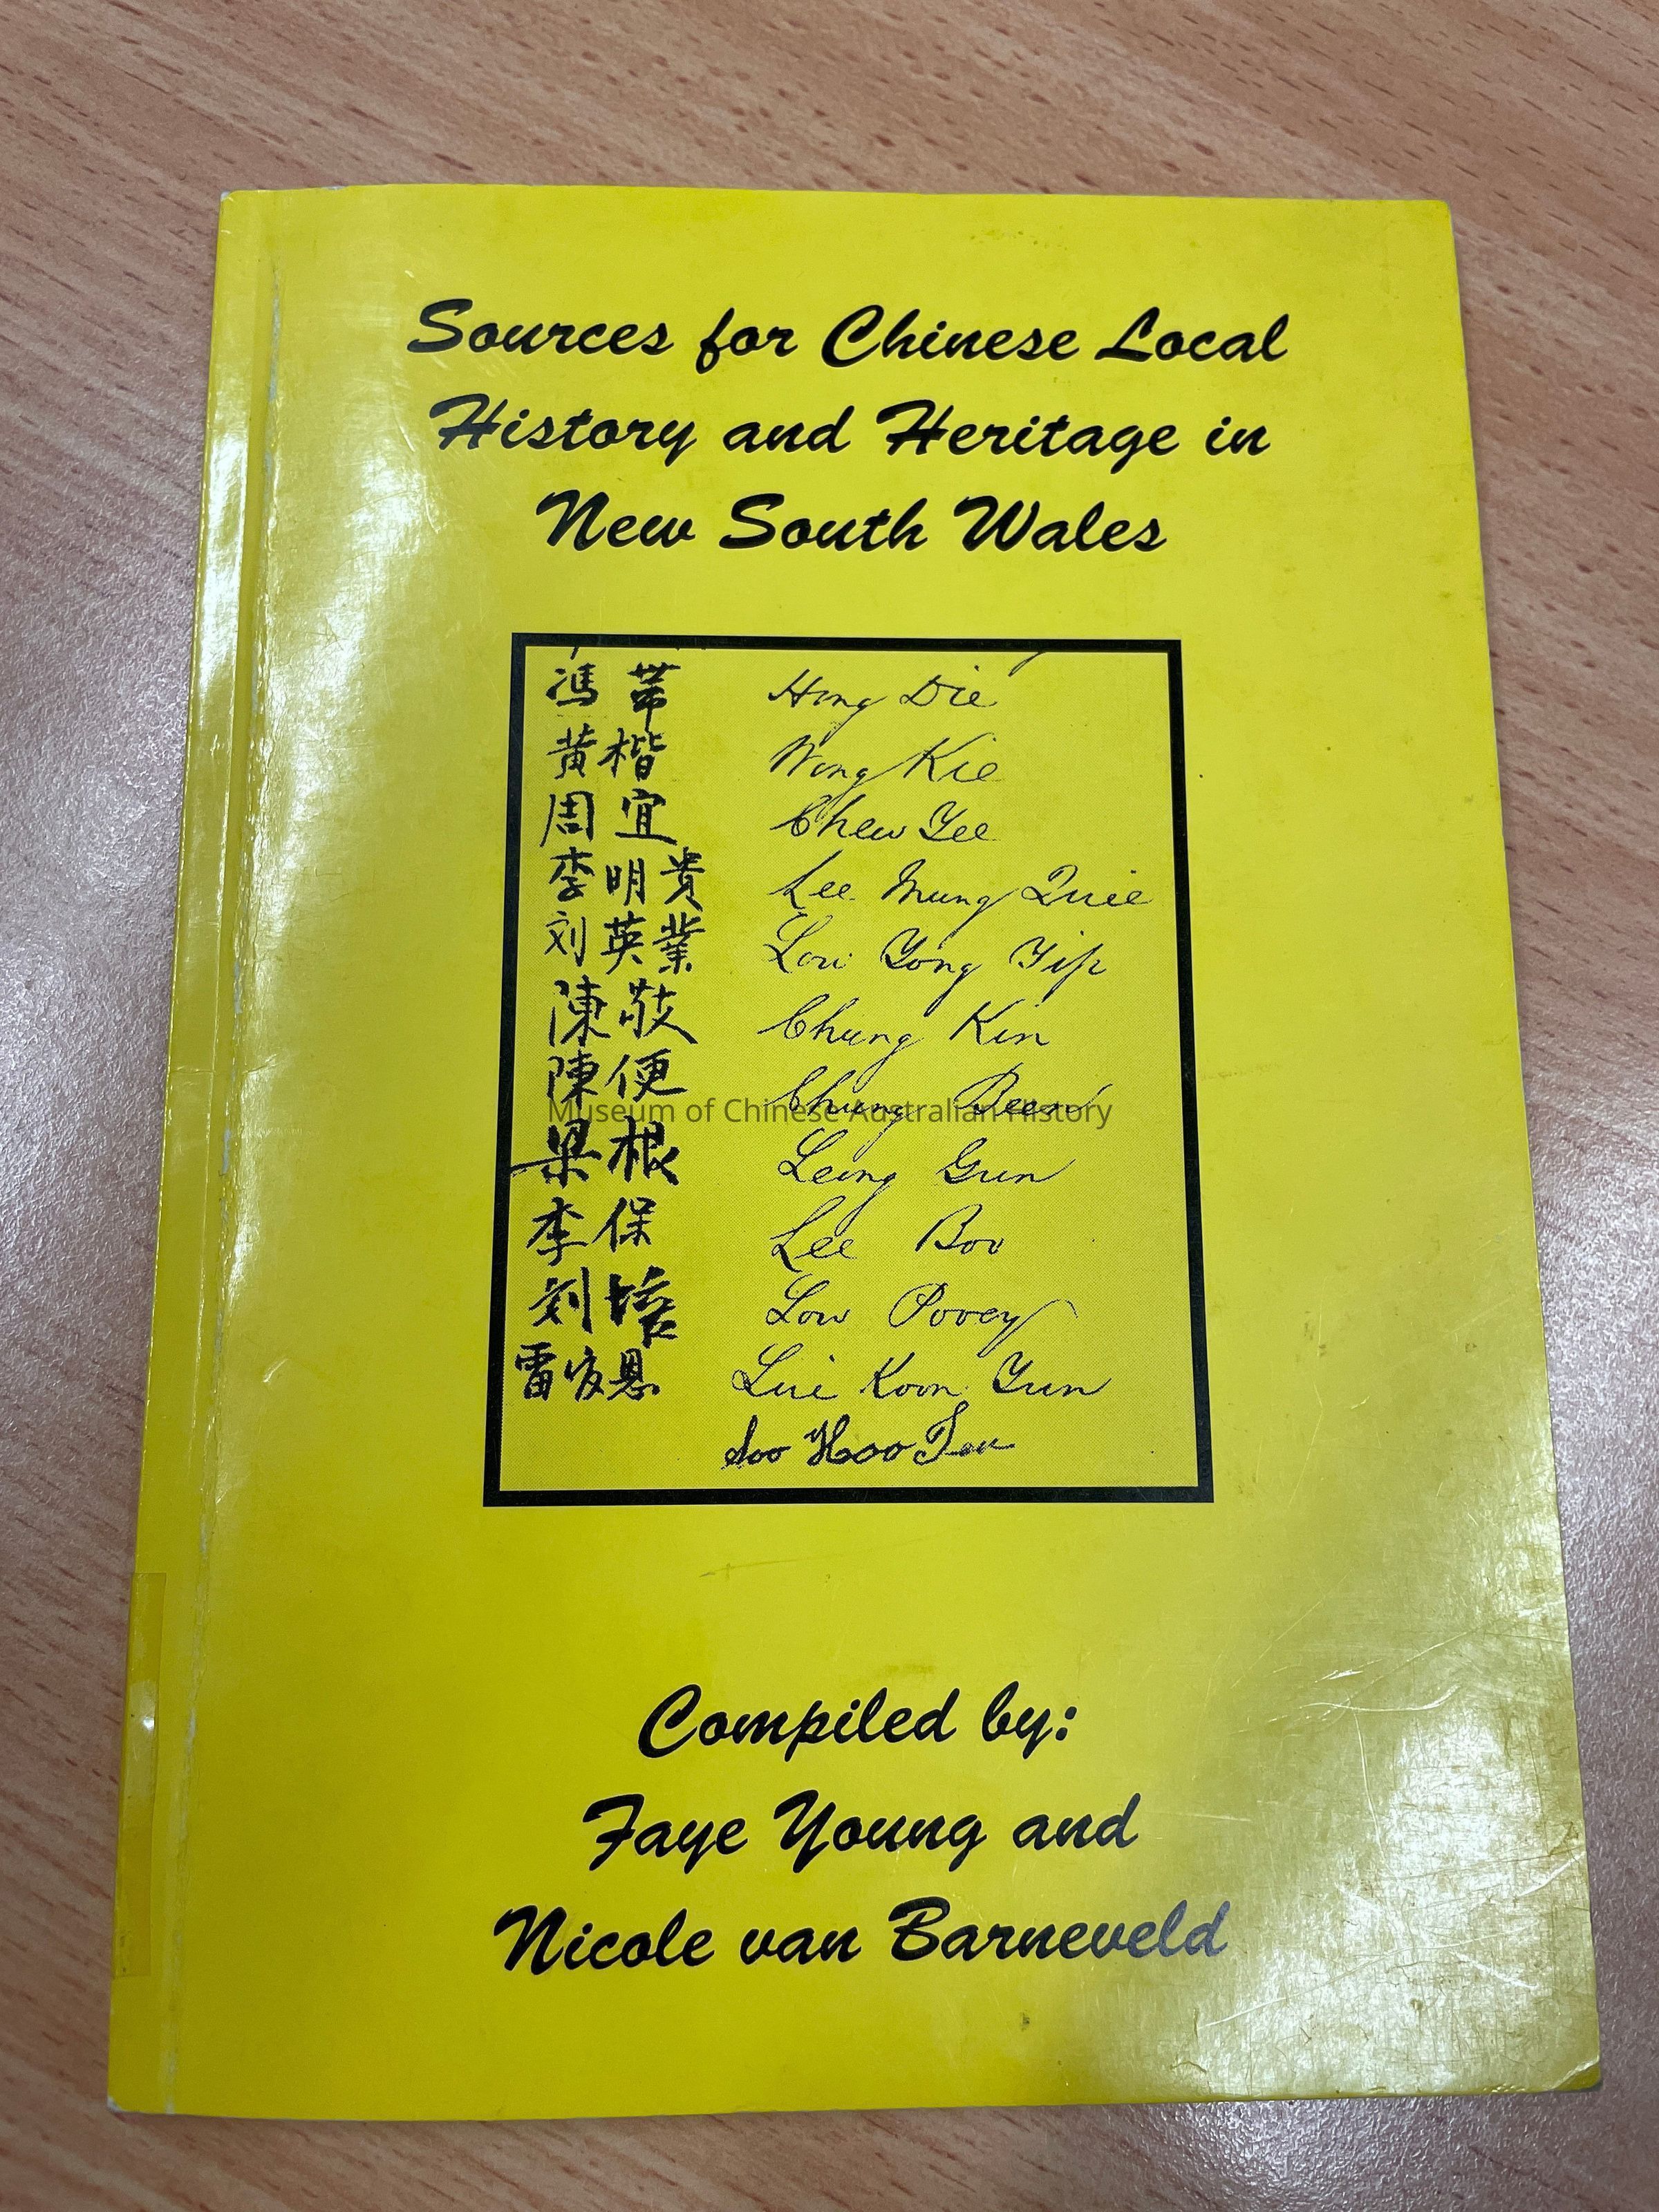 Sources for Chinese Local
History and Heritage in
New South Wales
馮 帶 Hong Die
黄楷 Wong Kie
周 宜 Chew Yee
李明貴 Lee Mung Quie
刘英業 Low Yong Yip
陳敬 Chung Kin
陳便 Chung Been
Museum of Chinese Australian History
梁根 Leong Gun
李保 Lee Boo
刘培 Low Povey
雷 恩 Lui Koon Yun
Soo Hoo
Compiled by:
Faye Young and
Nicole van Barneveld